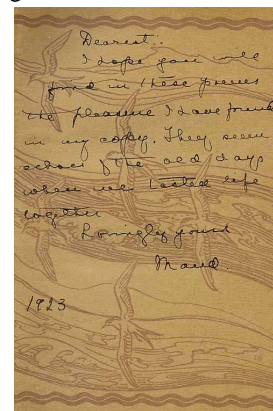 Dearest:
I hope you will
find in these poems
the pleasure I have found
in my copy. They seem
echoes of the old days
when we tasted life
together
Lovingly yours
Maud.
1923